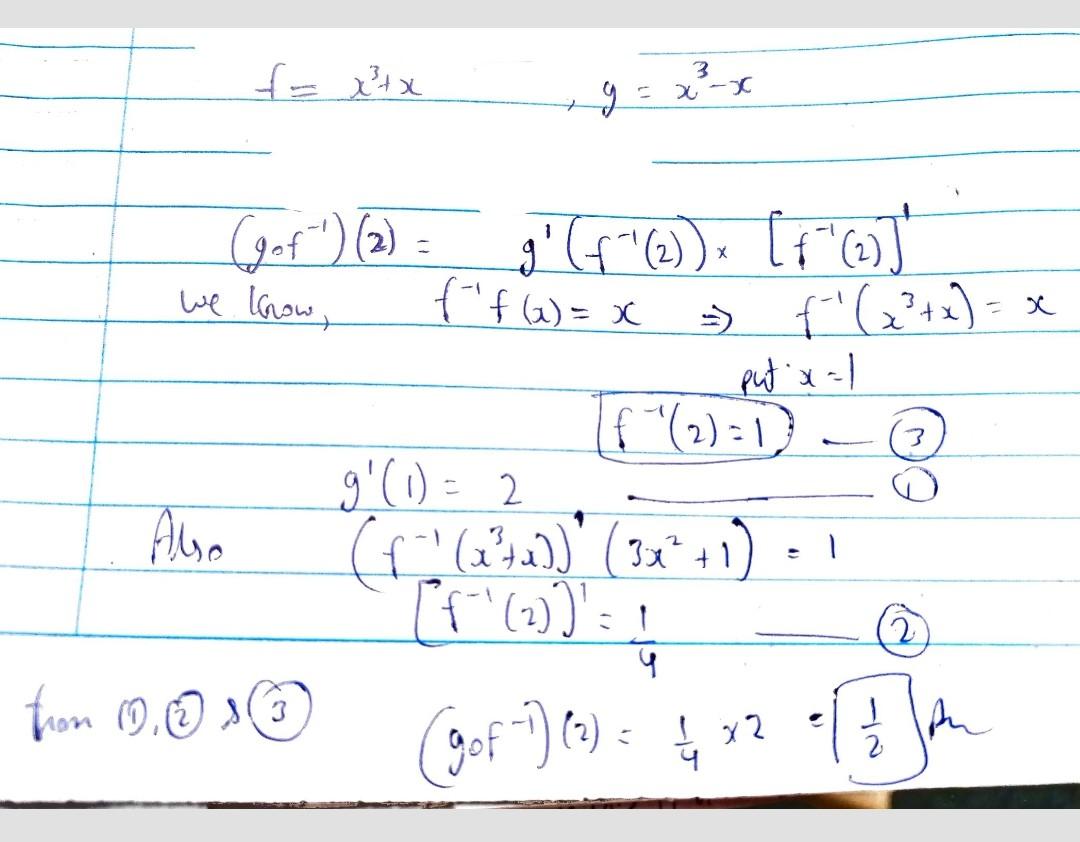 f = x³+x , g = x³-x
(gof⁻¹)(2) = g'(f⁻¹(2)) × [f⁻¹(2)]'
we know, f⁻¹f(x) = x ⇒ f⁻¹(x³+x) = x
put x=1
f⁻¹(2)=1 — ③
g'(1) = 2 — ①
Also (f⁻¹(x³+x))' (3x²+1) = 1
[f⁻¹(2)]' = 1/4 — ②
from ①,② & ③ (gof⁻¹)(2) = 1/4 ×2 = 1/2 An